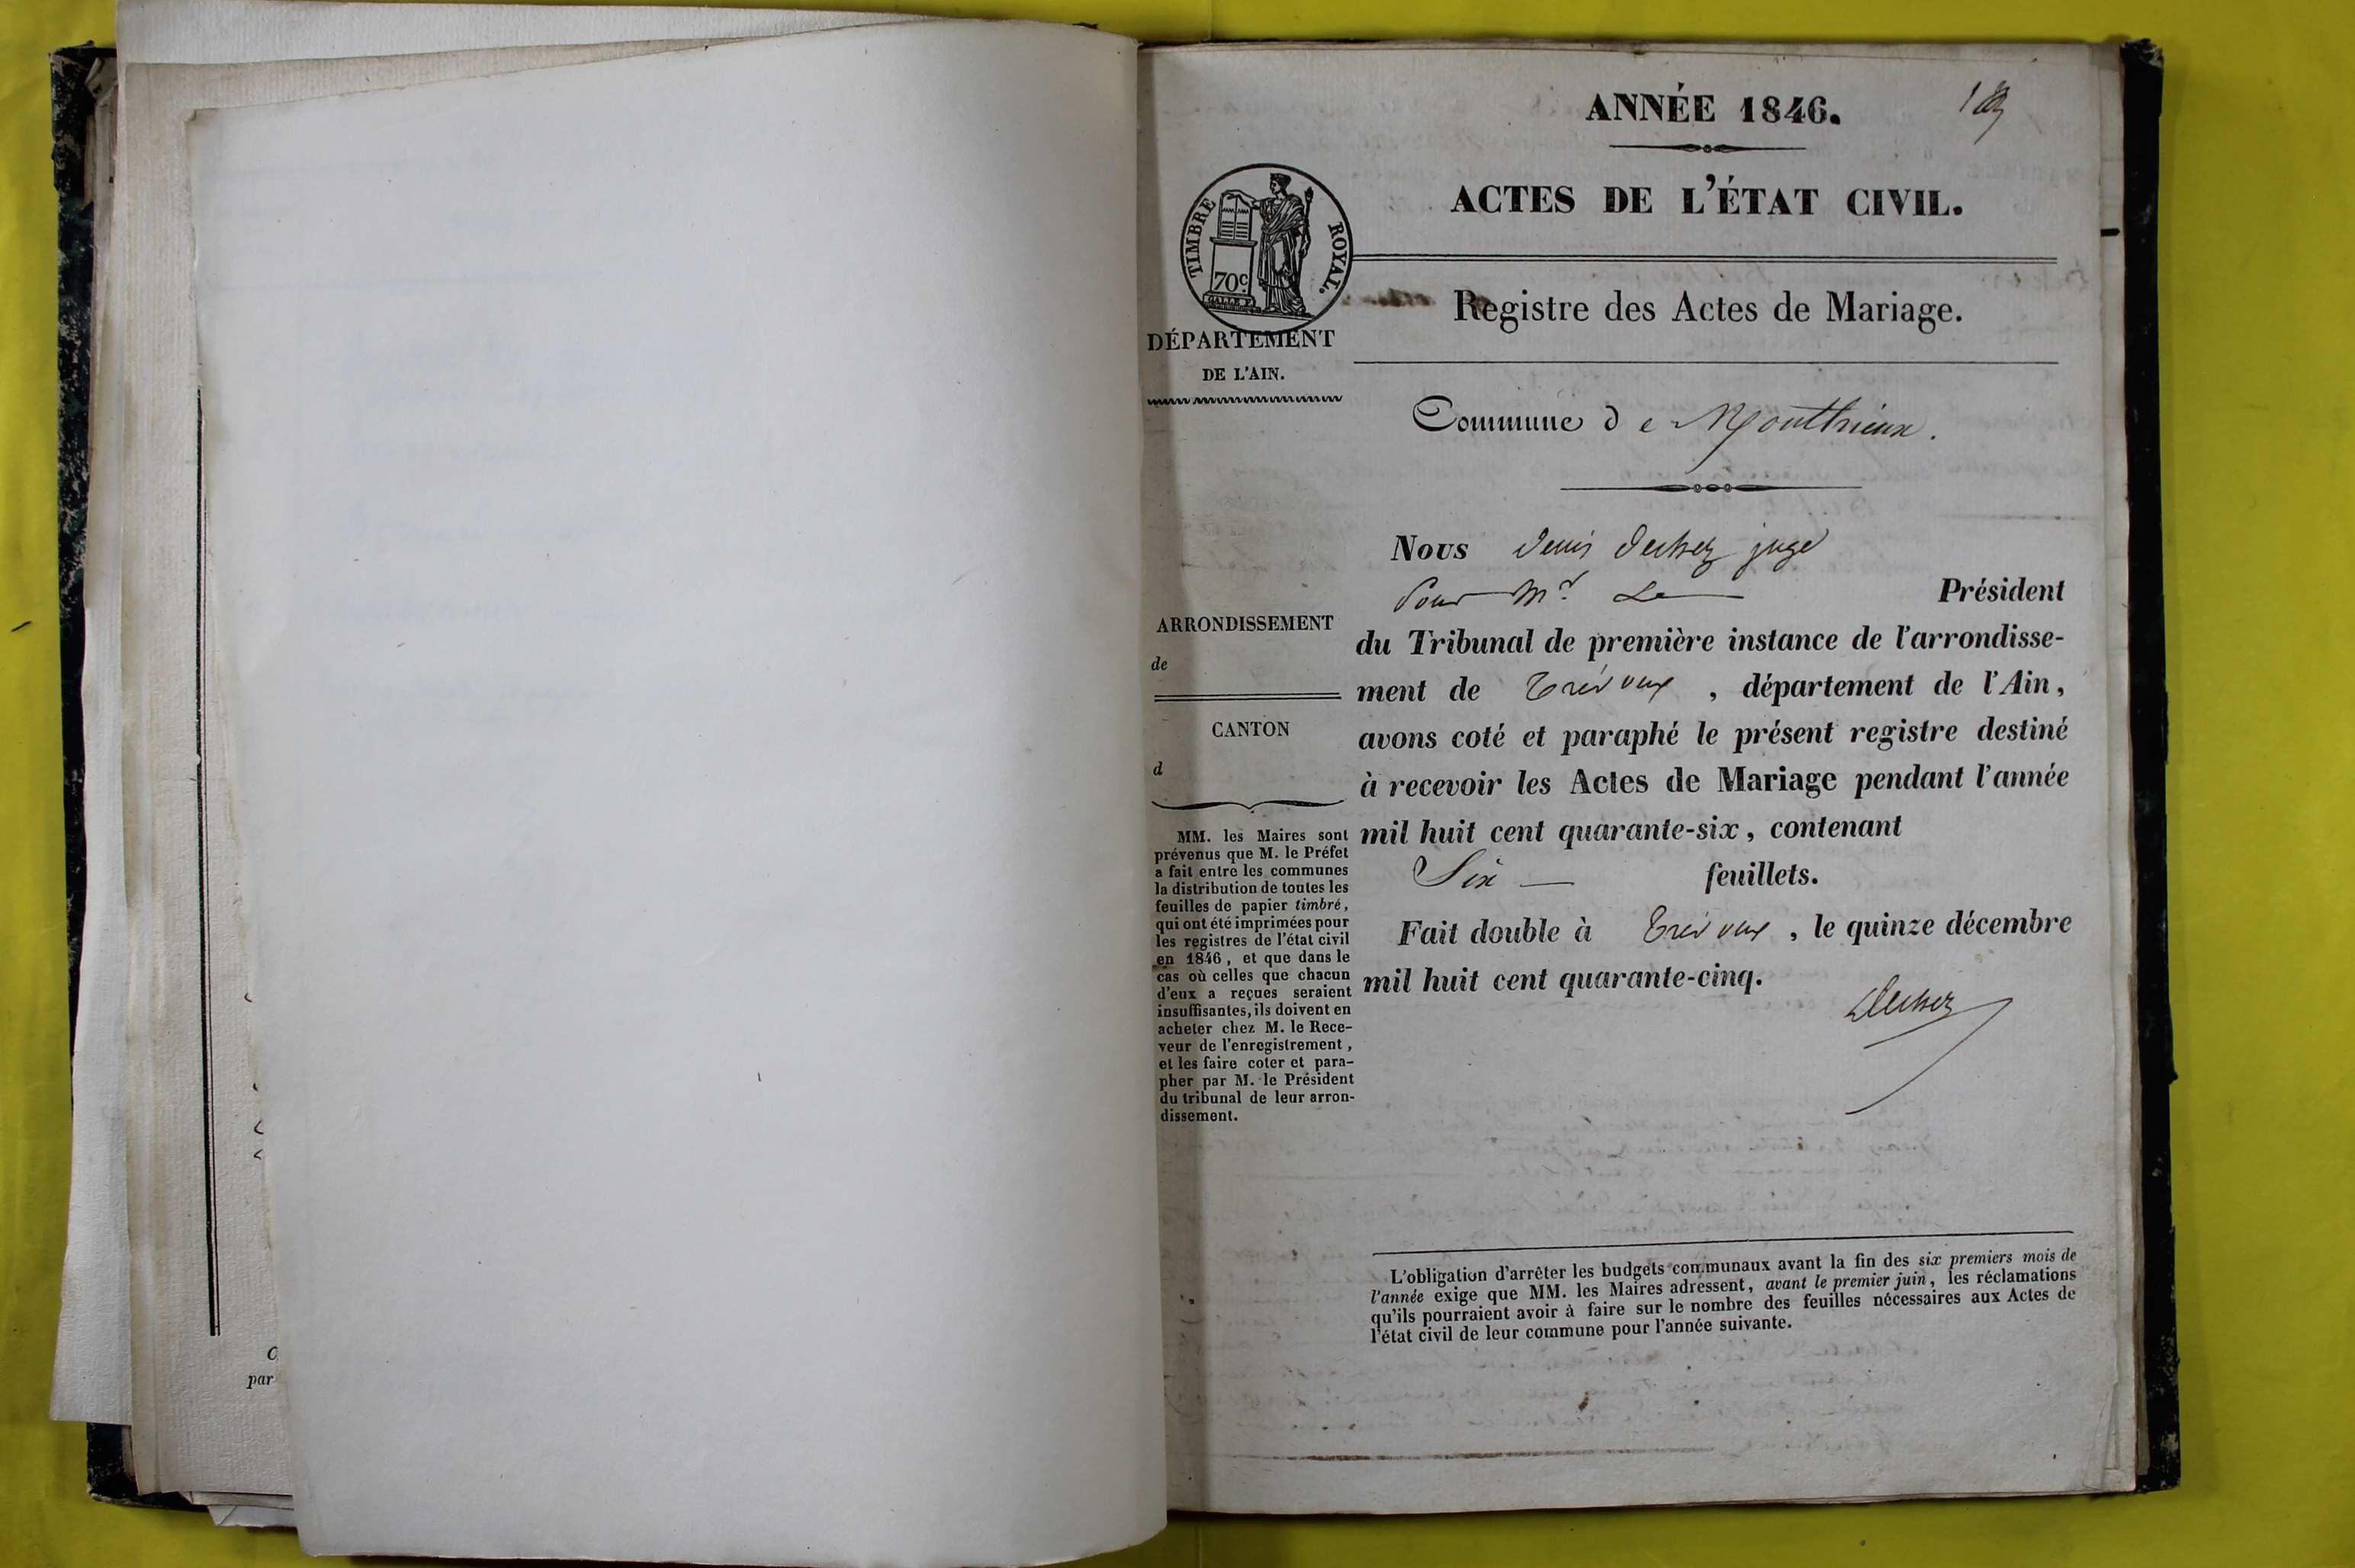 ANNÉE 1846.
ACTES DE L'ÉTAT CIVIL.
TIMBRE ROYAL.
70c
Registre des Actes de Mariage.
DÉPARTEMENT
DE L'AIN.
Commune de Monthieux.
Nous Denis Dechez juge
Pour Mr. Le Président
du Tribunal de première instance de l'arrondisse-
ment de Trévoux, département de l'Ain,
avons coté et paraphé le présent registre destiné
à recevoir les Actes de Mariage pendant l'année
mil huit cent quarante-six, contenant
Six feuillets.
Fait double à Trévoux, le quinze décembre
mil huit cent quarante-cinq.
Dechez
ARRONDISSEMENT
de
CANTON
d
MM. les Maires sont
prévenus que M. le Préfet
a fait entre les communes
la distribution de toutes les
feuilles de papier timbré,
qui ont été imprimées pour
les registres de l'état civil
en 1846, et que dans le
cas où celles que chacun
d'eux a reçues seraient
insuffisantes, ils doivent en
acheter chez M. le Rece-
veur de l'enregistrement,
et les faire coter et para-
pher par M. le Président
du tribunal de leur arron-
dissement.
L'obligation d'arrêter les budgets communaux avant la fin des six premiers mois de
l'année exige que MM. les Maires adressent, avant le premier juin, les réclamations
qu'ils pourraient avoir à faire sur le nombre des feuilles nécessaires aux Actes de
l'état civil de leur commune pour l'année suivante.
par